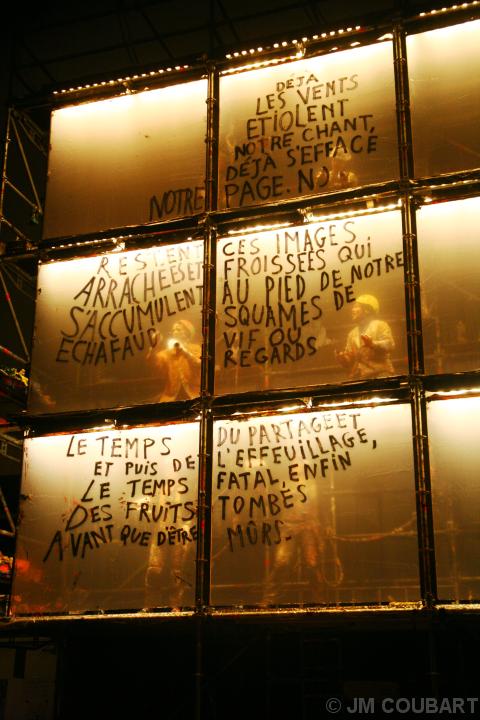 DÉJA
LES VENTS
ETIOLENT
NOTRE CHANT,
DÉJA S'EFFACE
NOTRE PAGE. N
RESTENT
ARRACHEES ET
S'ACCUMULENT
ECHAFAUD
CES IMAGES
FROISSÉES QUI
AU PIED DE NOTRE
SQUAMES DE
VIF OU
REGARDS
LE TEMPS
ET PUIS DE
LE TEMPS
DES FRUITS
AVANT QUE D'ÊTRE
DU PARTAGE ET
L'EFFEUILLAGE,
FATAL, ENFIN
TOMBÉS
MÛRS.
© JM COUBART